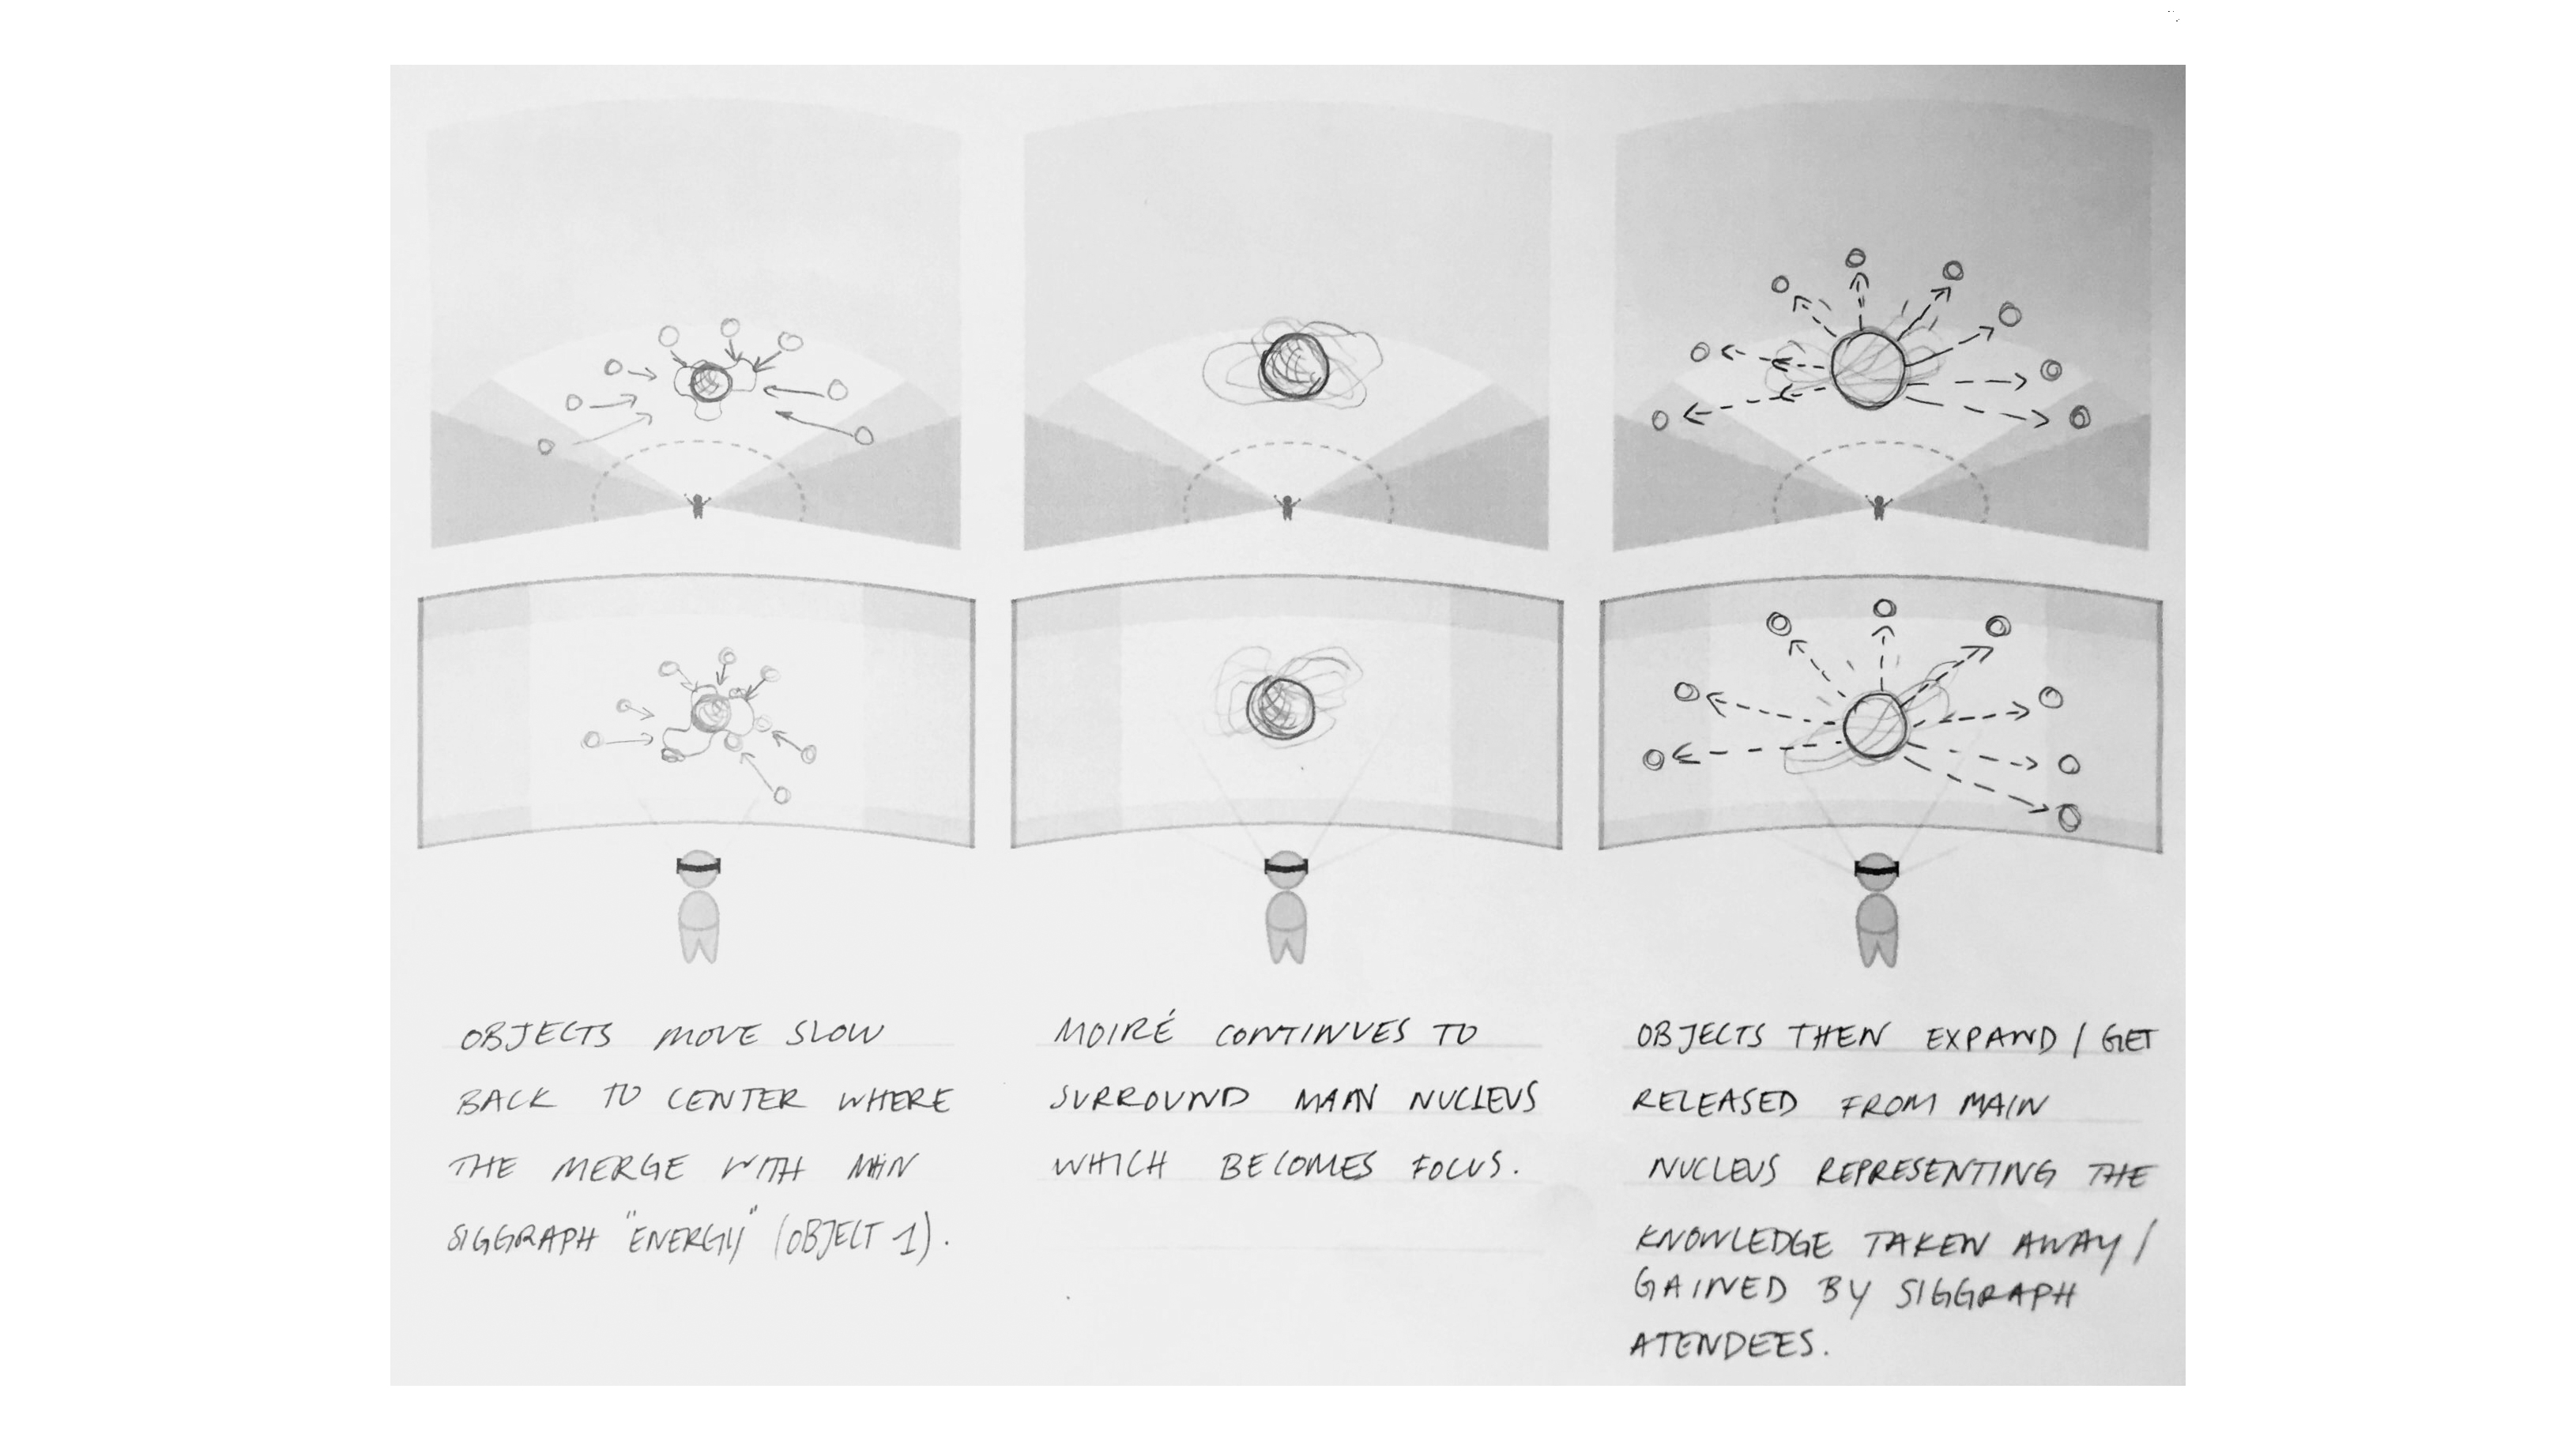 OBJECTS MOVE SLOW
BACK TO CENTER WHERE
THE MERGE WITH MAIN
SIGGRAPH "ENERGY" (OBJECT 1).
MOIRÉ CONTINUES TO
SURROUND MAIN NUCLEUS
WHICH BECOMES FOCUS.
OBJECTS THEN EXPAND / GET
RELEASED FROM MAIN
NUCLEUS REPRESENTING THE
KNOWLEDGE TAKEN AWAY /
GAINED BY SIGGRAPH
ATENDEES.